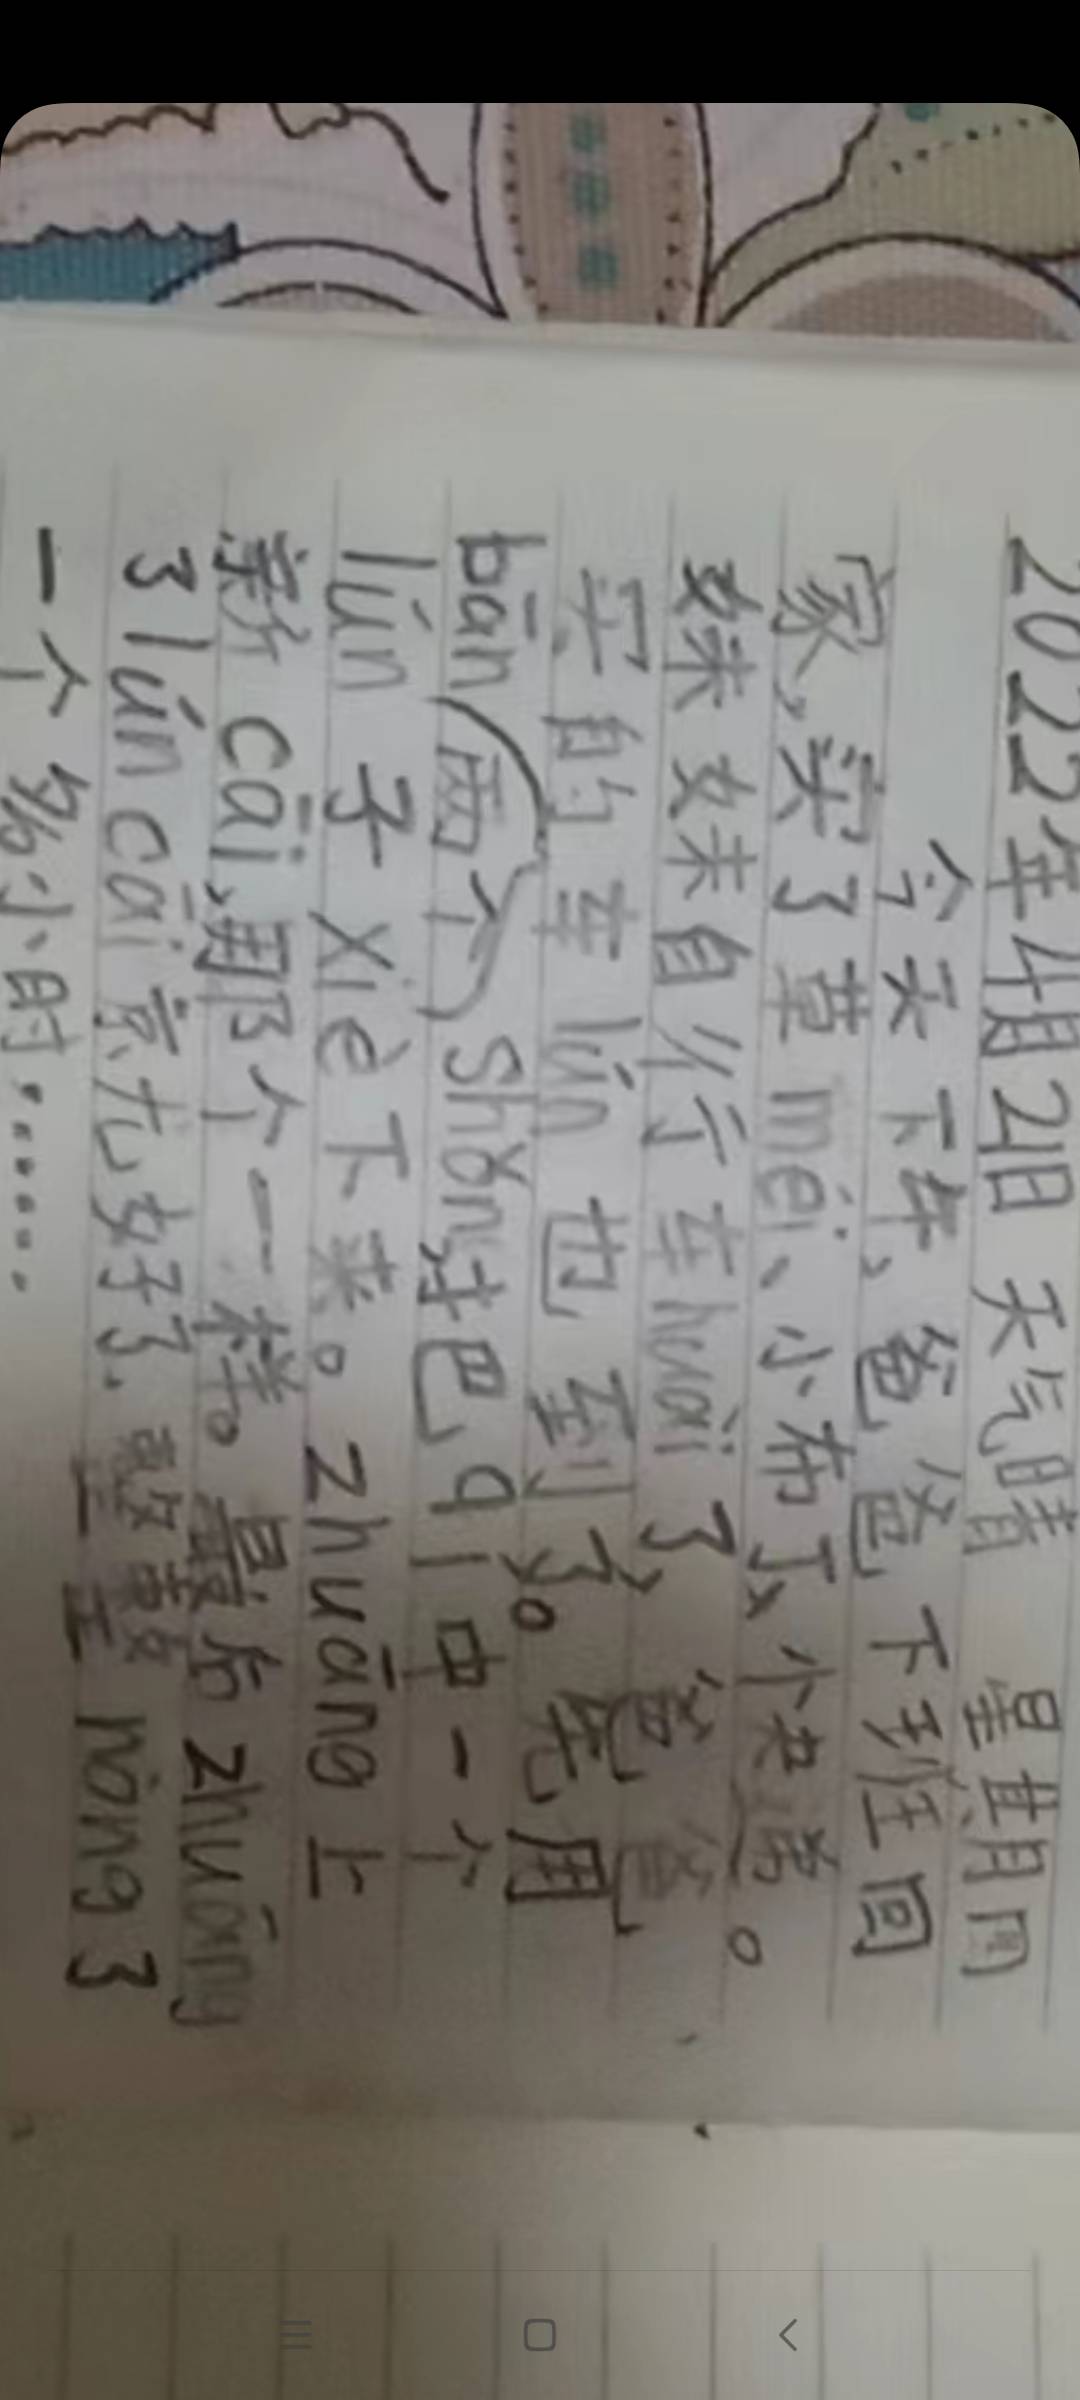 2022年4月21日 天气晴 星期四
今天下午,爸爸下班回
家,买了草méi、小布丁,小快递。
妹妹妹自行车huài了,爸爸
买的车lún也到了。先用
bān(两个)shǒu,过把q1中一个
lún子xiè下来。zhuāng上
新cāi,那个一样。最后zhuāng
3lúncāi就好了.整整nòng3
一个多小时……